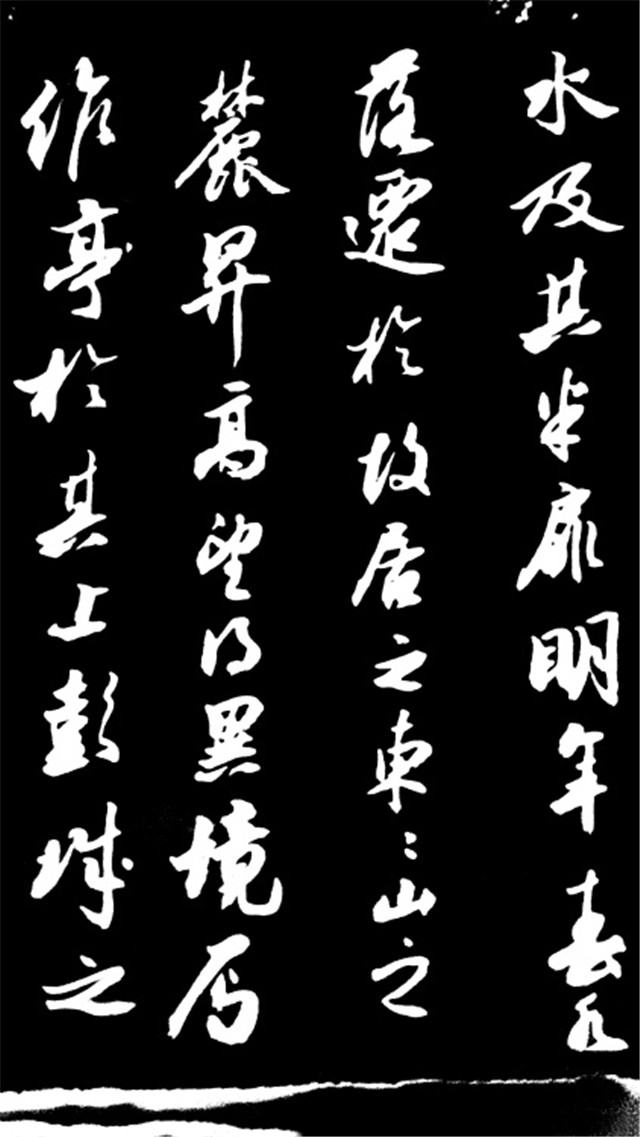 水及其半扉明年春水
落遷於故居之東〻山之
麓昇高望得異境焉
作亭於其上彭城之